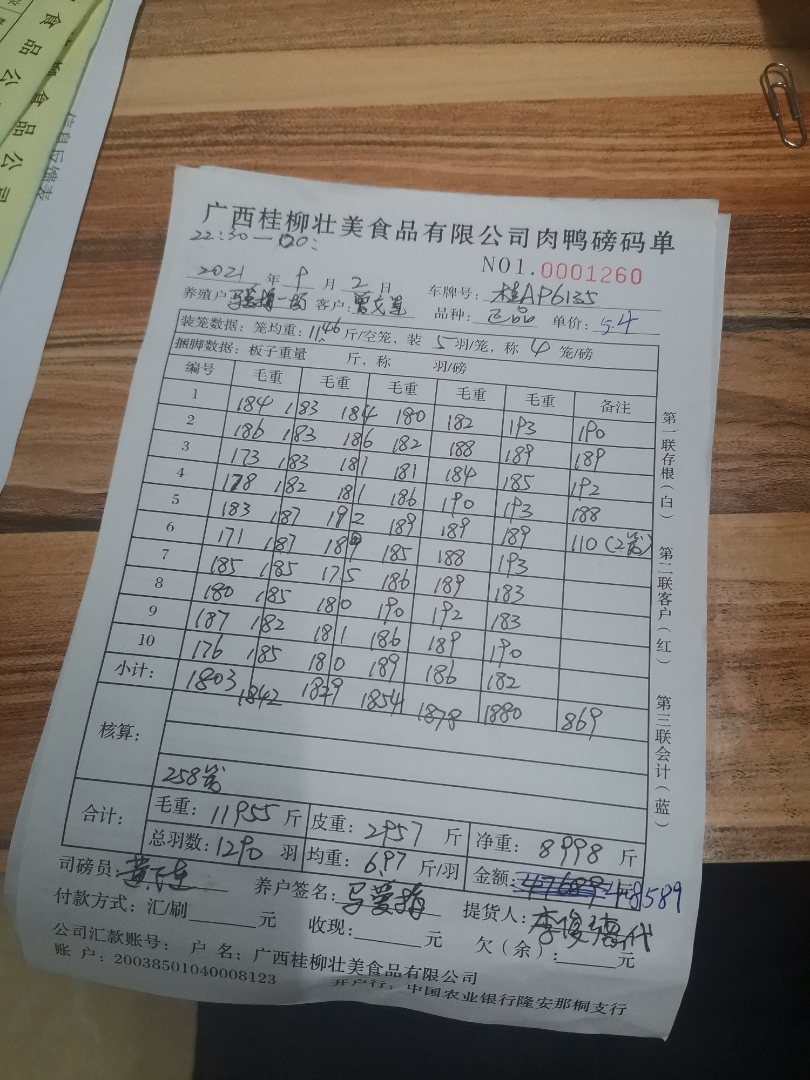 食品公
柳食品公司
信息反馈表
广西桂柳壮美食品有限公司肉鸭磅码单
22:30—
NO1.0001260
2021年9月2日 车牌号：桂AP6135
养殖户 客户： 品种：正品 单价：5.4
装笼数据：笼均重：11.46斤/空笼，装5羽/笼，称4笼/磅
捆脚数据：板子重量 斤，称 羽/磅
编号 毛重 毛重 毛重 毛重 毛重 备注
1 184 183 184 180 182 193 190
2 186 183 186 182 188 189 189
3 173 183 181 181 184 185 192
4 178 182 181 186 190 193 188
5 183 187 192 189 189 189 110(2笼)
6 171 187 189 185 188 193
7 185 185 175 186 189 183
8 180 185 180 190 192 183
9 187 182 181 186 189 190
10 176 185 180 189 186 182
小计： 1803 1842 1829 1854 1878 1880 869
核算：
258笼
合计： 毛重：11955斤 皮重：2957斤 净重：8998斤
总羽数：1290羽 均重：6.97斤/羽 金额：47689 48589
司磅员： 养户签名：马爱梅 提货人：
付款方式：汇/刷 元 收现： 元 欠（余）： 元
公司汇款账号： 户 名：广西桂柳壮美食品有限公司
账 户：20038501040008123 开户行：中国农业银行隆安那桐支行
第一联存根（白） 第二联客户（红） 第三联会计（蓝）